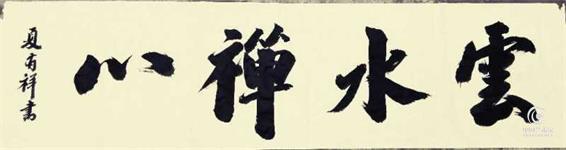 雲水禪心
夏有祥書